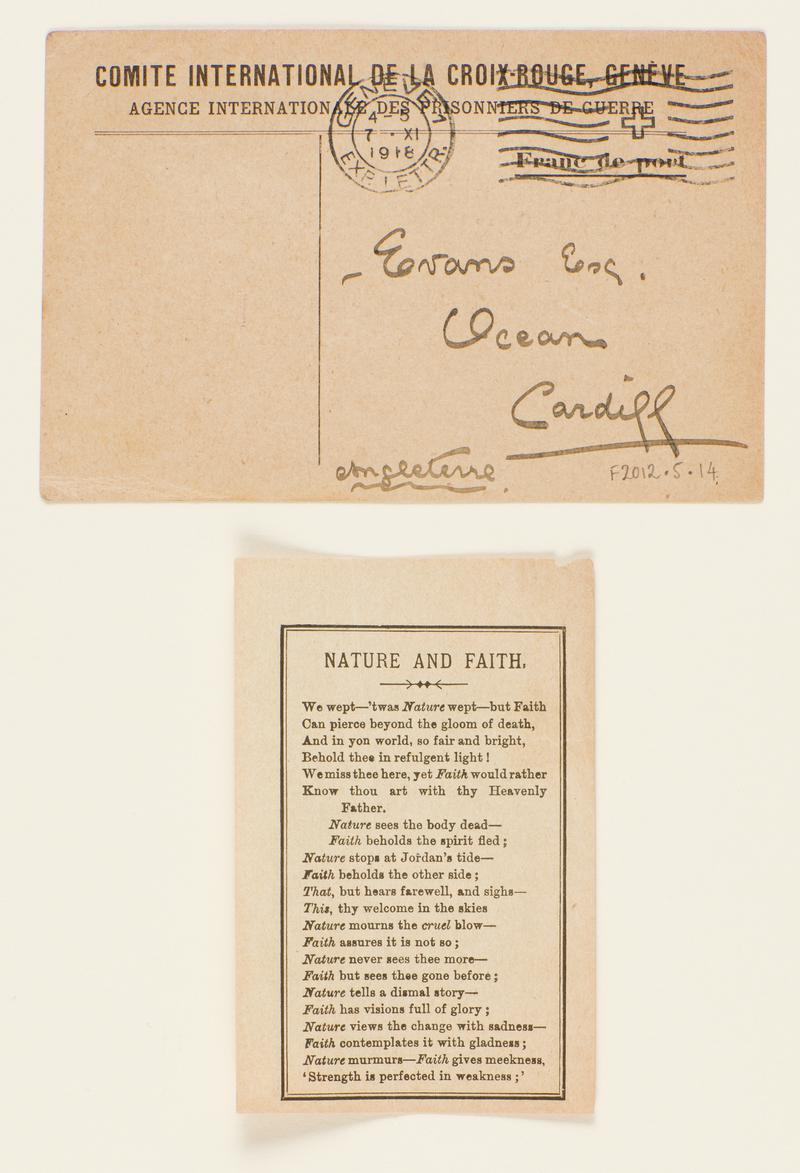 COMITE INTERNATIONAL DE LA CROIX-ROUGE, GENÈVE
AGENCE INTERNATIONALE DES PRISONNIERS DE GUERRE
GENÈVE
4-5
7 · XI
1918
EXP. LETTR.
Franc de port
Evans Esq.
Ocean
Cardiff
Angleterre.
F2012.5.14
NATURE AND FAITH.
We wept—'twas Nature wept—but Faith
Can pierce beyond the gloom of death,
And in yon world, so fair and bright,
Behold thee in refulgent light!
We miss thee here, yet Faith would rather
Know thou art with thy Heavenly
Father.
Nature sees the body dead—
Faith beholds the spirit fled;
Nature stops at Jordan's tide—
Faith beholds the other side;
That, but hears farewell, and sighs—
This, thy welcome in the skies
Nature mourns the cruel blow—
Faith assures it is not so;
Nature never sees thee more—
Faith but sees thee gone before;
Nature tells a dismal story—
Faith has visions full of glory;
Nature views the change with sadness—
Faith contemplates it with gladness;
Nature murmurs—Faith gives meekness,
'Strength is perfected in weakness;'